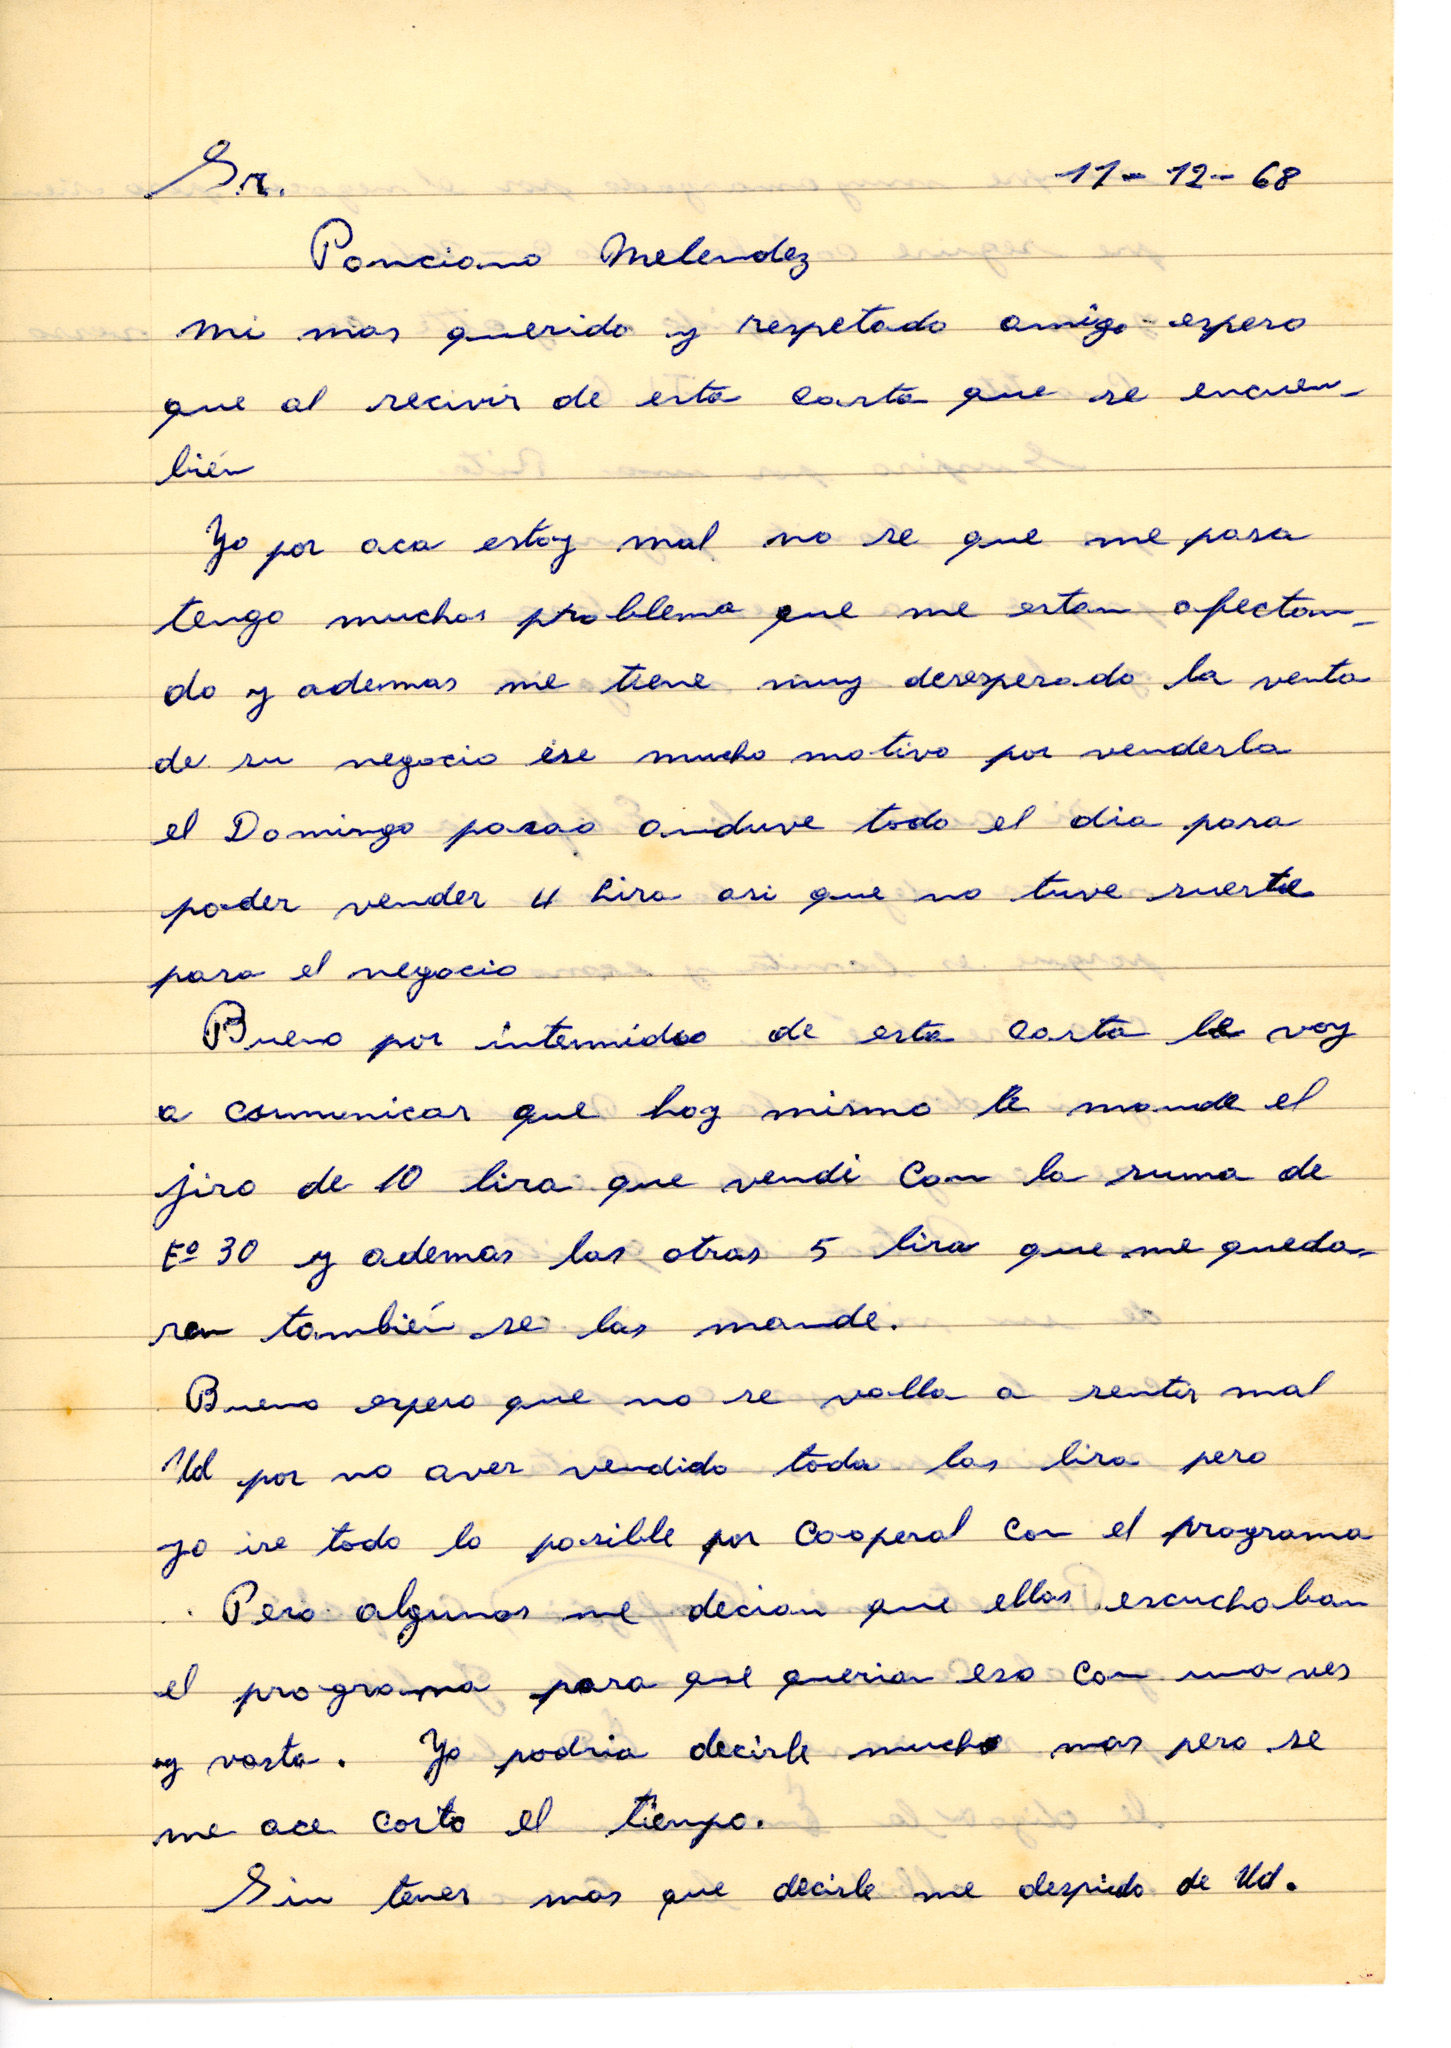 Sr. 11-12-68
Ponciano Melendez
Mi mas querido y respetado amigo espero
que al recivir de esta carta que se encuen-
bién
Yo por aca estoy mal no se que me pasa
tengo muchos problema que me estan afectan-
do y ademas me tiene muy desesperado la venta
de su negocio ise mucho motivo por venderla
el Domingo pasao anduve todo el dia para
poder vender 4 Lira asi que no tuve suerte
para el negocio
Bueno por intermidoo de esta carta le voy
a comunicar que hoy mismo le mande el
jiro de 10 lira que vendi Con la suma de
Eº 30 y ademas las otras 5 lira que me queda-
ron también se las mande.
Bueno espero que no se valla a sentir mal
Ud por no aver vendido toda las lira pero
yo ise todo lo posible por Cooperal Con el programa
Pero algunos me decian que ellos escuchaban
el programa para que querian eso Con una ves
y vasta. Yo podria decirle mucho mas pero se
me ace corto el tiempo.
Sin tener mas que decirle me despido de Ud.